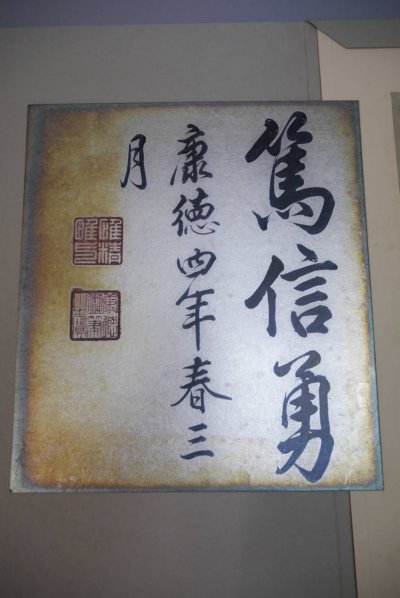 篤信勇
康德四年春三
月